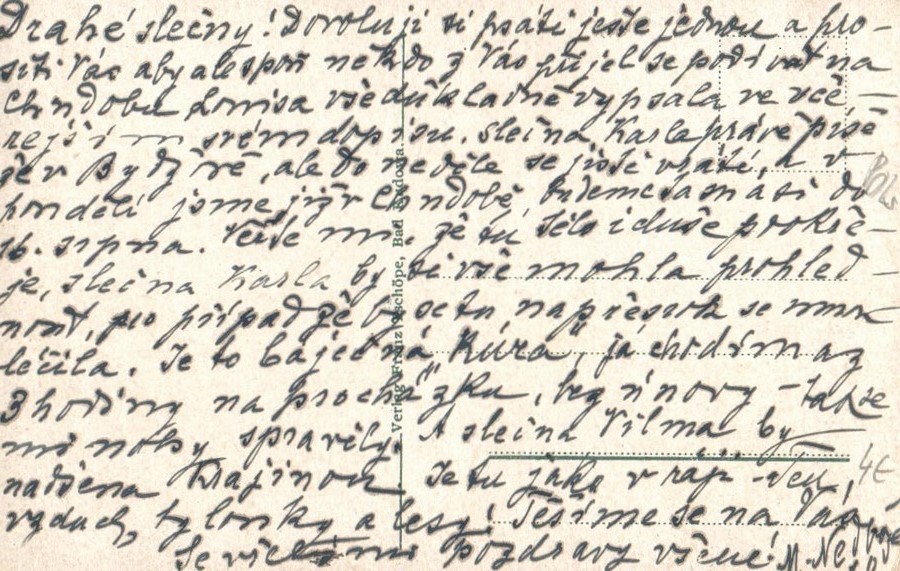 Drahé slečny! Dovoluji si psáti ještě jednou a pro-
siti Vás aby alespoň někdo z Vás přijel se podívat na
Chudobu Louisa vše důkladně vypsala ve vče-
rejším svém dopisu. slečna Karla právě píše
že v Bydž ně, ale do neděle se ještě vrátí, a v
pondělí jsme již v Chudobě, budeme sama si do
16. srpna. Těše mi, že tu tělo i duše pookře-
je, slečna Karla by si vše mohla prohléd-
nout, pro případ že by se tu napřesrok se mnou
léčila. Je to báječná "Kúra", já chodím až
3 hodiny na procházku, bez únavy - takže
mi nohy spravěly. A slečna Vilma by
nadšena Krajinou Je tu jako v ráji
vzduch, bylonky a lesy! Těšíme se na Vás
Se všemi pozdravy věrné! M.
Verlag Franz Zschöpe, Bad Kudova
4€